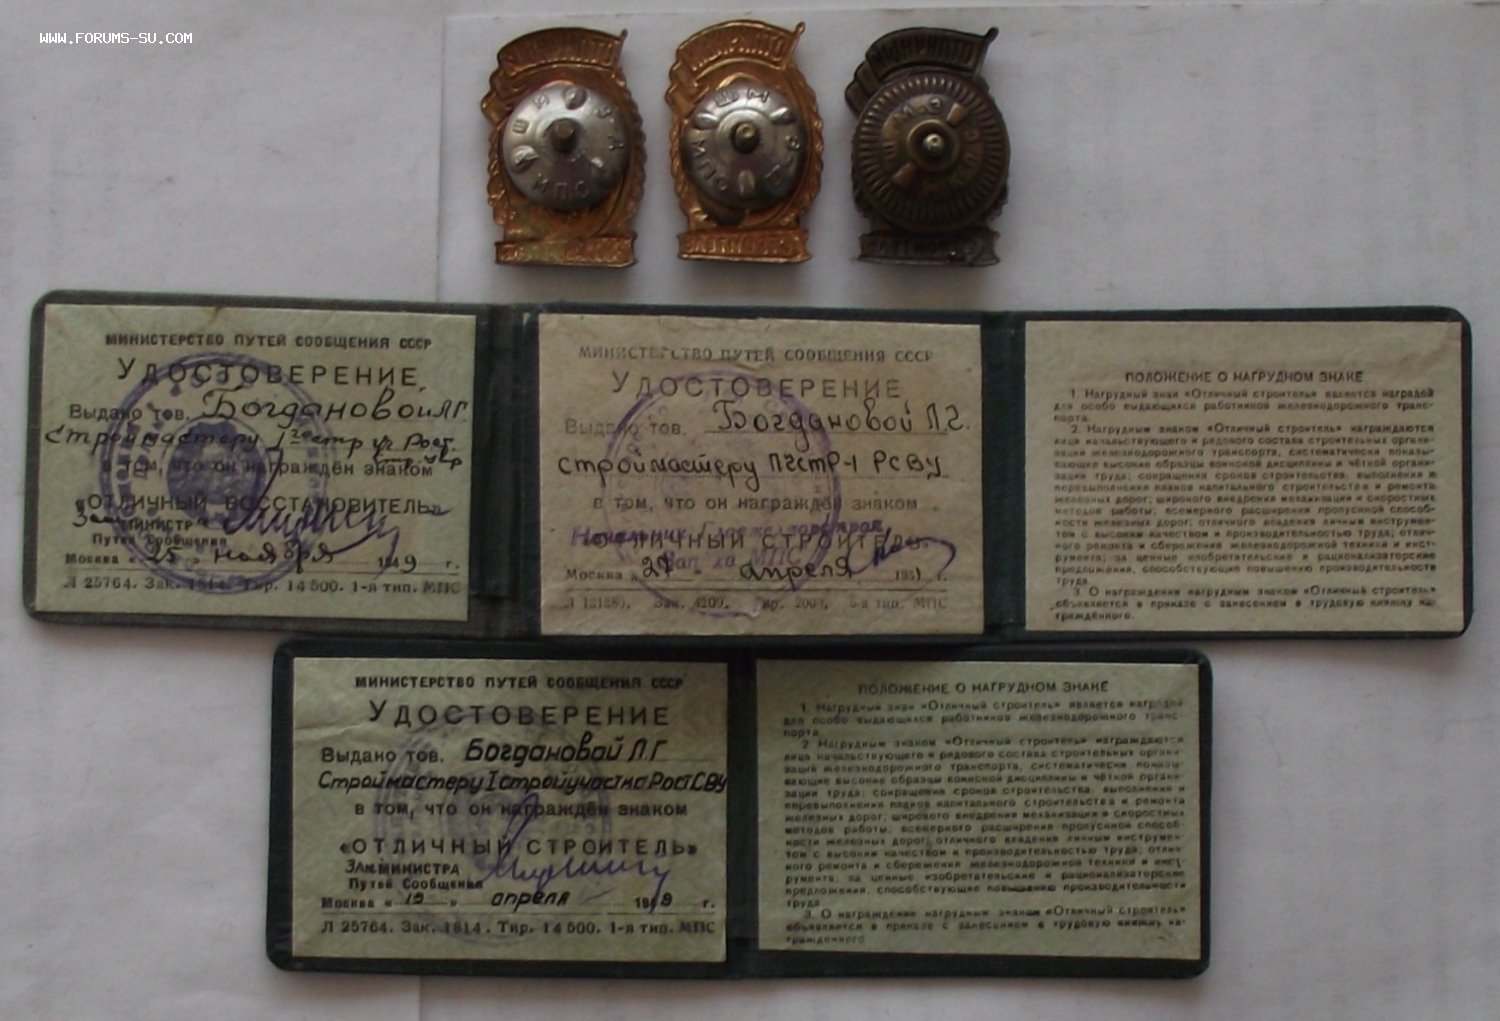 WWW.FORUMS-SU.COM
МИНИСТЕРСТВО ПУТЕЙ СООБЩЕНИЯ СССР
УДОСТОВЕРЕНИЕ
Выдано тов. Богдановой Л.Г.
Строймастеру
в том, что он награждён знаком
«ОТЛИЧНЫЙ ВОССТАНОВИТЕЛЬ»
Зам МИНИСТРА
Путей Сообщения
Москва « 25 » ноября 1949 г.
Л 25764. Зак. 1814. Тир. 14 500. 1-я тип. МПС
МИНИСТЕРСТВО ПУТЕЙ СООБЩЕНИЯ СССР
УДОСТОВЕРЕНИЕ
Выдано тов. Богдановой Л.Г.
строймастеру РСВУ
в том, что он награждён знаком
«ОТЛИЧНЫЙ СТРОИТЕЛЬ»
Москва « 27 » апреля 1951 г.
Зак. 4209. МПС
ПОЛОЖЕНИЕ О НАГРУДНОМ ЗНАКЕ
1. Нагрудный знак «Отличный строитель» является наградой
для особо выдающихся работников железнодорожного транс-
порта.
2. Нагрудным знаком «Отличный строитель» награждаются
лица начальствующего и рядового состава строительных органи-
заций железнодорожного транспорта, систематически показы-
вающие высокие образцы воинской дисциплины и чёткой органи-
зации труда; сокращения сроков строительства, выполнения и
перевыполнения планов капитального строительства и ремонта
железных дорог; широкого внедрения механизации и скоростных
методов работы; всемерного расширения пропускной способ-
ности железных дорог; отличного владения личным инструмен-
том с высоким качеством и производительностью труда; отлич-
ного ремонта и сбережения железнодорожной техники и инст-
румента; за ценные изобретательские и рационализаторские
предложения, способствующие повышению производительности
труда.
3. О награждении нагрудным знаком «Отличный строитель»
объявляется в приказе с занесением в трудовую книжку на-
граждённого.
МИНИСТЕРСТВО ПУТЕЙ СООБЩЕНИЯ СССР
УДОСТОВЕРЕНИЕ
Выдано тов. Богдановой Л.Г
Строймастеру I стройучастка РостСВУ
в том, что он награждён знаком
«ОТЛИЧНЫЙ СТРОИТЕЛЬ»
ЗАМ. МИНИСТРА
Путей Сообщения
Москва « » апреля 1949 г.
Л 25764. Зак. 1814. Тир. 14 500. 1-я тип. МПС
ПОЛОЖЕНИЕ О НАГРУДНОМ ЗНАКЕ
1. Нагрудный знак «Отличный строитель» является наградой
для особо выдающихся работников железнодорожного транс-
порта.
2. Нагрудным знаком «Отличный строитель» награждаются
лица начальствующего и рядового состава строительных органи-
заций железнодорожного транспорта, систематически показы-
вающие высокие образцы воинской дисциплины и чёткой органи-
зации труда; сокращения сроков строительства, выполнения и
перевыполнения планов капитального строительства и ремонта
железных дорог; широкого внедрения механизации и скоростных
методов работы; всемерного расширения пропускной способ-
ности железных дорог; отличного владения личным инструмен-
том с высоким качеством и производительностью труда; отлич-
ного ремонта и сбережения железнодорожной техники и инст-
румента; за ценные изобретательские и рационализаторские
предложения, способствующие повышению производительности
труда.
3. О награждении нагрудным знаком «Отличный строитель»
объявляется в приказе с занесением в трудовую книжку на-
граждённого.